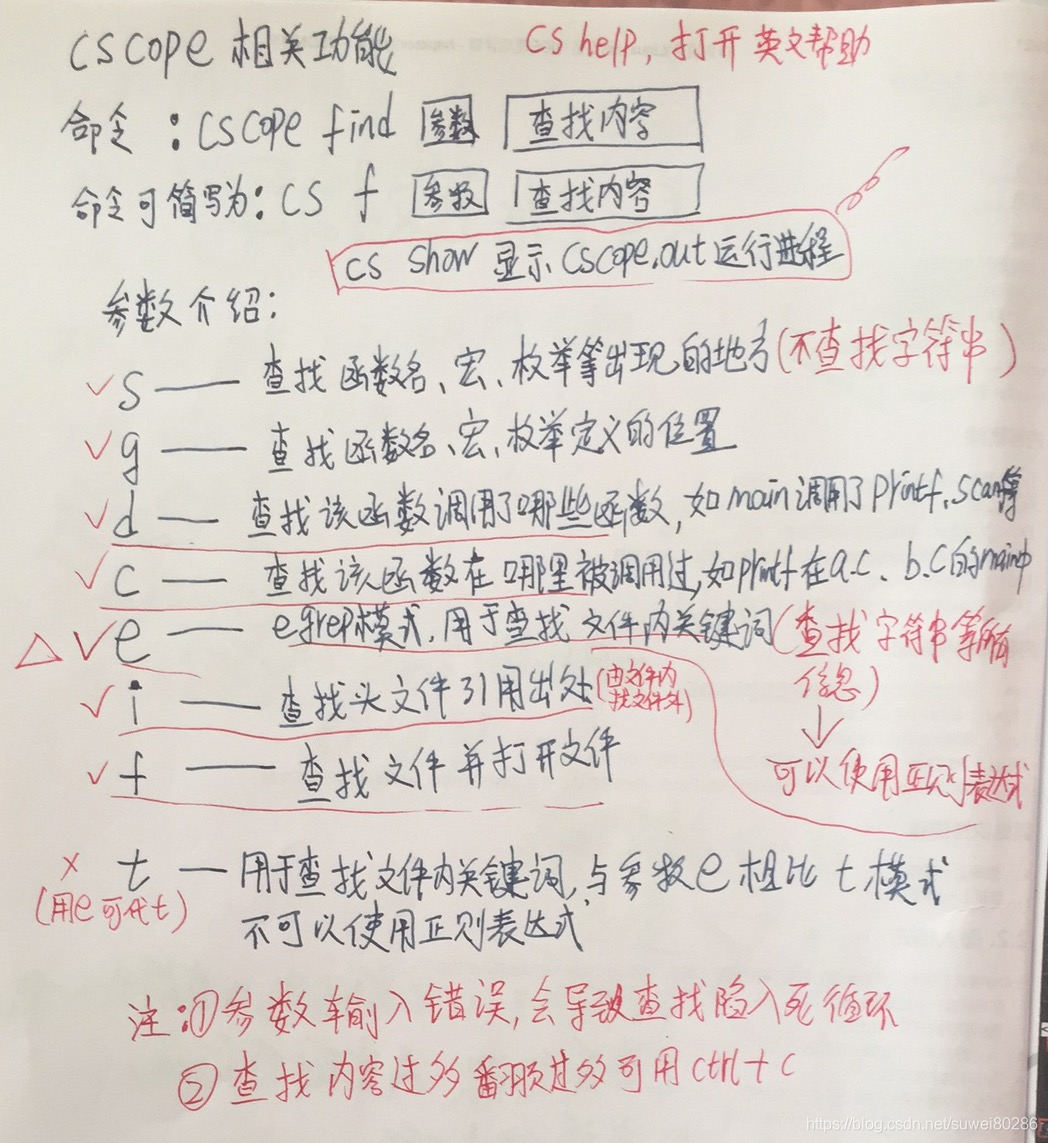 cscope 相关功能
cs help, 打开英文帮助
命令：cscope find 参数 查找内容
命令可简写为：cs f 参数 查找内容
cs show 显示 cscope.out 运行进程
参数介绍：
✓ s —— 查找函数名、宏、枚举等出现的地方(不查找字符串)
✓ g —— 查找函数名、宏、枚举定义的位置
✓ d —— 查找该函数调用了哪些函数, 如main调用了printf、scanf等
✓ c —— 查找该函数在哪里被调用过, 如printf在a.c、b.c的main中
△ ✓ e —— egrep模式, 用于查找文件内关键词(查找字符串等所有
信息)
✓ i —— 查找头文件引用出处(由文件内
找文件外)
↓
✓ f —— 查找文件并打开文件
可以使用正则表达式
× t — 用于查找文件内关键词, 与参数e相比t模式
(用e可代t)
不可以使用正则表达式
注：①参数输入错误, 会导致查找陷入死循环
②查找内容过多翻页过多可用ctrl+c
https://blog.csdn.net/suwei80286